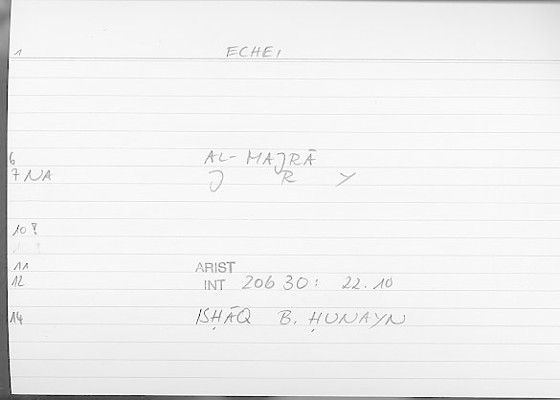 1 ECHEI
6 AL-MAJRĀ
7 NA J R Y
10 ?
11 ARIST
12 INT 206 30: 22.10
14 ISḤĀQ B. ḤUNAYN